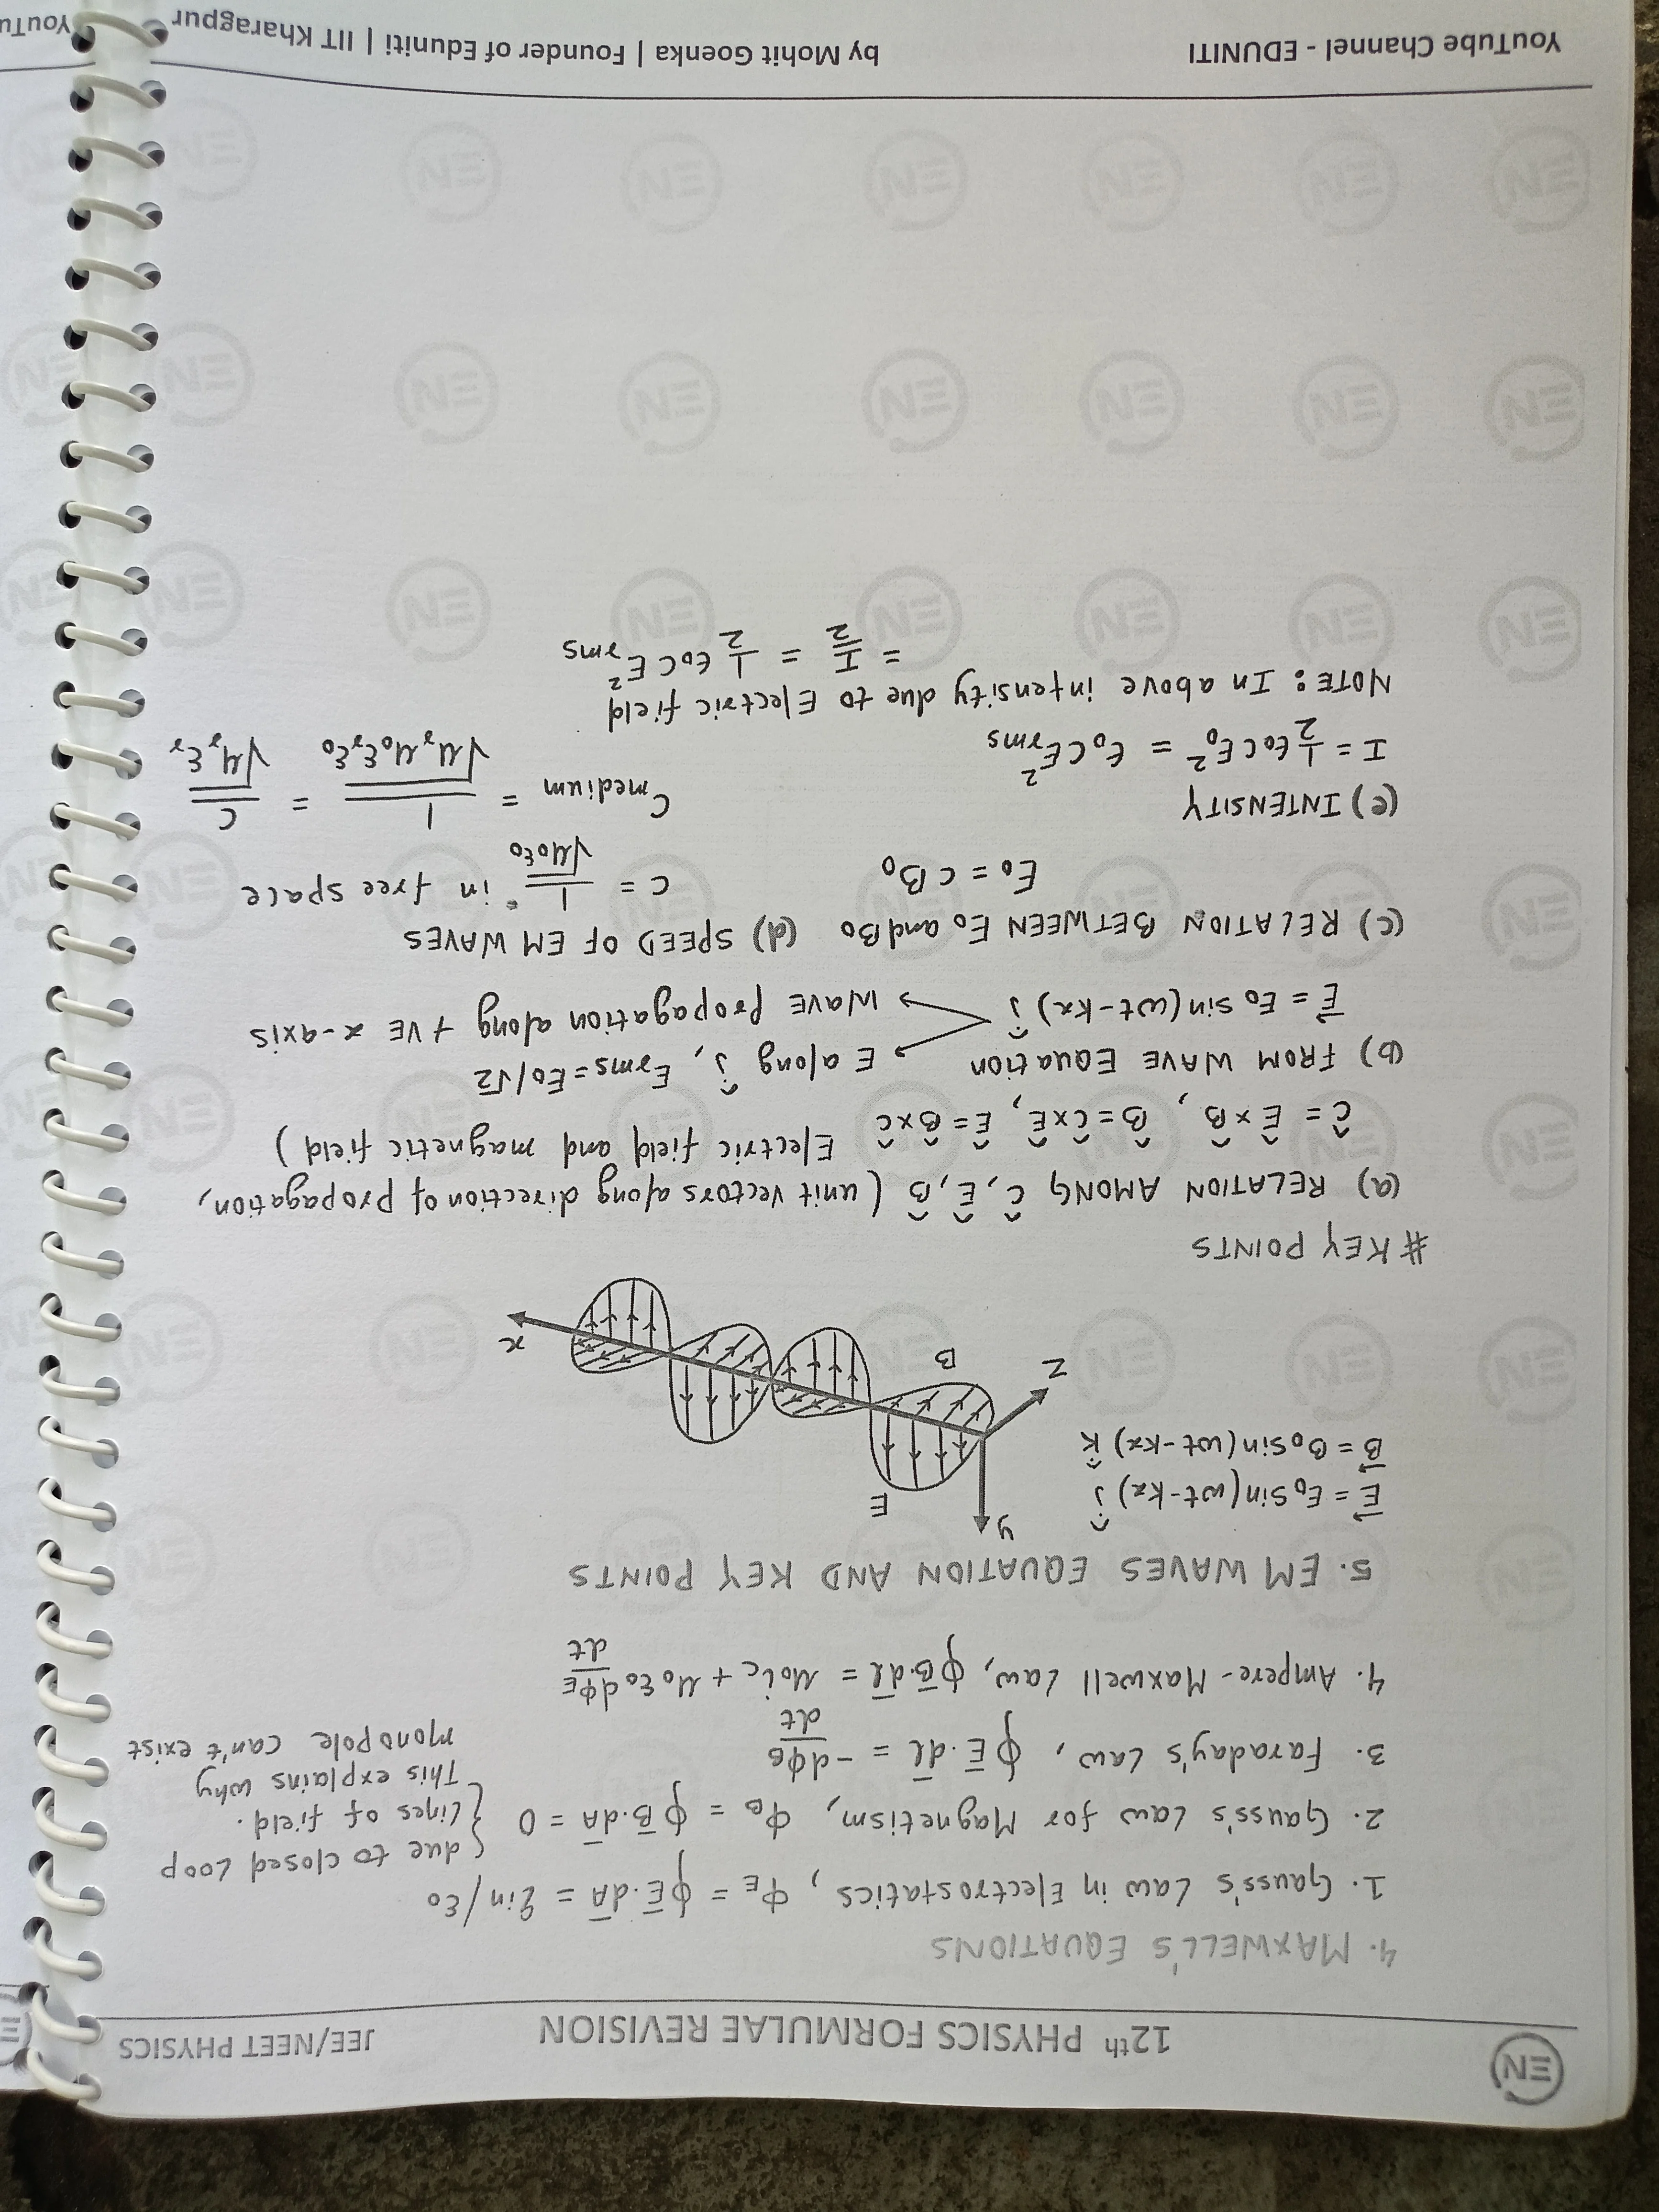 EN
12th PHYSICS FORMULAE REVISION
JEE/NEET PHYSICS
4. MAXWELL'S EQUATIONS
1. Gauss's Law in Electrostatics, Φ_E = ∮E̅.dA̅ = qin/ε₀
2. Gauss's Law for Magnetism, Φ_B = ∮B̅.dA̅ = 0
{due to closed Loop
Lines of field.
This explains why
monopole can't exist
3. Faraday's Law, ∮E̅.dl̅ = -dΦ_B/dt
4. Ampere-Maxwell Law, ∮B̅.dl̅ = μ₀i_c + μ₀ε₀dΦ_E/dt
5. EM WAVES EQUATION AND KEY POINTS
E⃗ = E₀ Sin(ωt-kx) ĵ
B⃗ = B₀ Sin(ωt-kx) k̂
y
E
z
B
x
# KEY POINTS
(a) RELATION AMONG Ĉ, Ê, B̂ (unit vectors along direction of propagation,
Ĉ = Ê × B̂, B̂ = Ĉ × Ê, Ê = B̂ × Ĉ Electric field and magnetic field)
(b) FROM WAVE EQUATION
E along ĵ, Erms = E₀/√2
E⃗ = E₀ sin(ωt-kx) ĵ
WAVE propagation along +VE x-axis
(c) RELATION BETWEEN E₀ and B₀
E₀ = cB₀
(d) SPEED OF EM WAVES
c = 1/√μ₀ε₀ in free space
Cmedium = 1/√μᵣμ₀εᵣε₀ = C/√μᵣεᵣ
(e) INTENSITY
I = 1/2 ε₀CE₀² = ε₀CE²rms
NOTE: In above intensity due to Electric field
= I/2 = 1/2 ε₀CE²rms
YouTube Channel - EDUNITI
by Mohit Goenka | Founder of Eduniti | IIT Kharagpur
YouTu